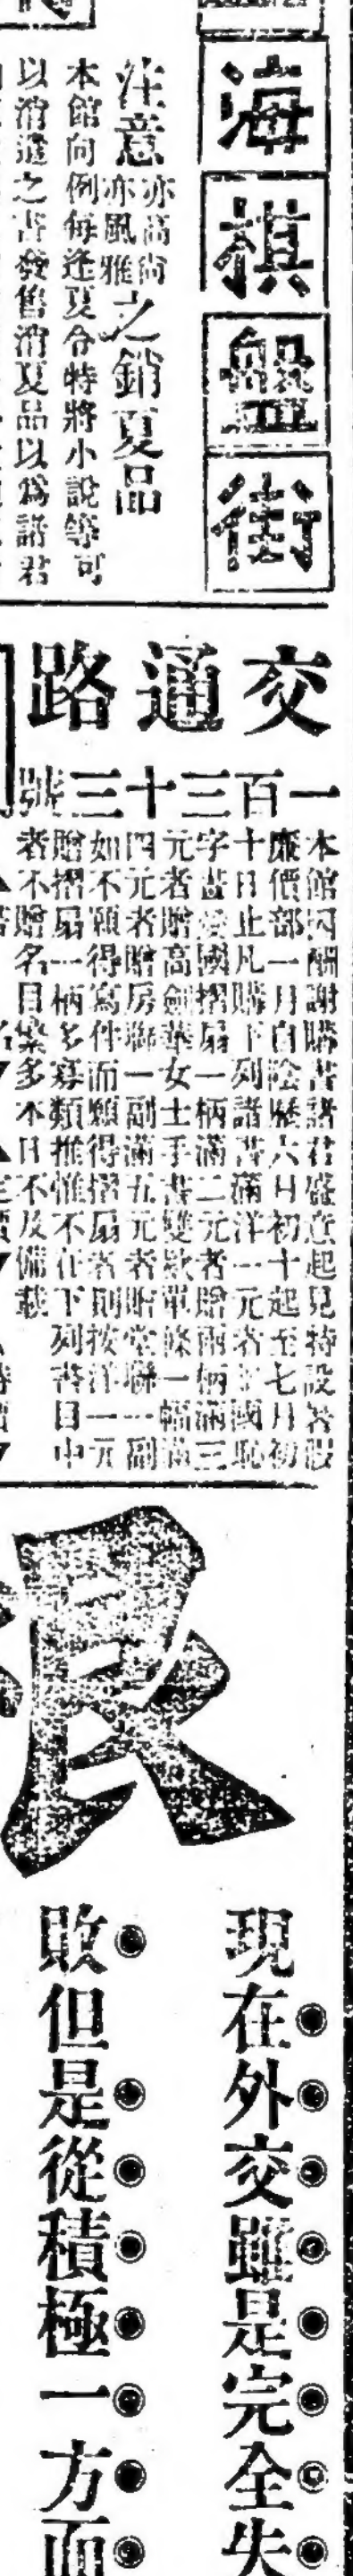 海棋盤街
注意亦高尚亦風雅之銷夏品
本館向例每逢夏令特將小說等可
以消遣之書發售消夏品以爲諸君
交通路
一百三十三號
本館因酬謝購書諸君盛意起見特設暑假
廉價部一月自陰曆六月初十起至七月初
十日止凡購下列諸書滿洋一元者贈國恥
字畫愛國摺扇一柄滿二元者贈兩柄滿三
元者贈高劍華女士手書雙款單條一幅滿
四元者贈房聯一副滿五元者贈堂聯一副
如不願得寫件而願得摺扇者則按洋一元
贈摺扇一柄多寡類推惟不在下列書目中
者不贈名目繁多本日不及備載
現在外交雖是完全失
敗但是從積極一方面